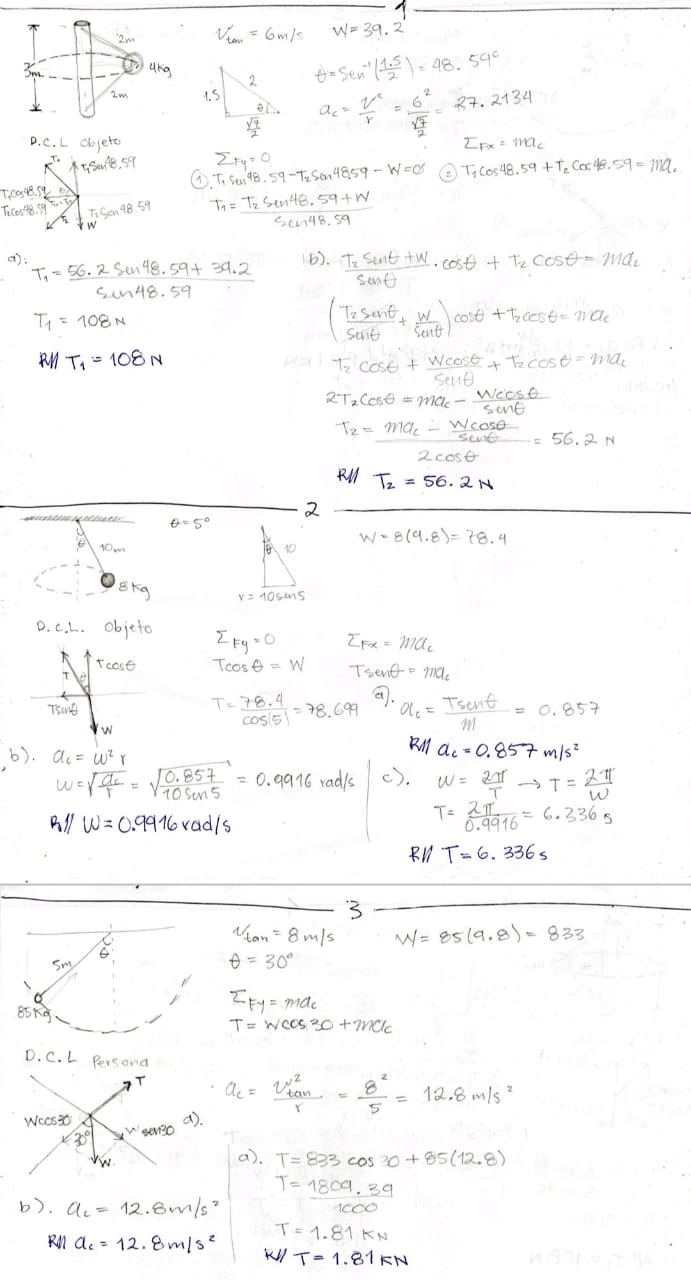 1
2m
3m
4kg
2m
Vtan = 6m/s W=39.2
θ=Sen⁻¹(1.5/2)=48.59°
1.5 2 θ √7/2
ac = v²/r = 6²/(√7/2) = 27.2134
D.C.L Objeto
T₁ T₁Sen48.59
T₁Cos48.59 θ
T₂Cos48.59 T₂Sen48.59
T₂ W
ΣFy=0 ΣFx=mac
① T₁ Sen48.59-T₂Sen4859-W=0 ② T₁Cos48.59+T₂Cos48.59=mac
T₁= (T₂Sen48.59+W)/Sen48.59
a):
T₁= (56.2 Sen48.59+39.2)/Sen48.59
T₁ = 108N
R// T₁=108N
b). (T₂Senθ+W)/Senθ . cosθ + T₂Cosθ=mac
(T₂Senθ/Senθ + W/Senθ) cosθ+T₂cosθ=mac
T₂Cosθ + Wcosθ/Senθ + T₂cosθ=mac
2T₂Cosθ=mac - Wcosθ/senθ
T₂ = (mac - Wcosθ/senθ)/2cosθ = 56.2 N
R// T₂ = 56.2N
2
θ=5°
θ 10m
8kg
θ 10
r=10sen5
W=8(9.8)=78.4
D.C.L. Objeto
T Tcosθ
θ
Tsenθ
W
ΣFy=0 ΣFx=mac
Tcosθ=W Tsenθ=mac
T=78.4/cos(5)=78.699
a). ac=Tsenθ/m = 0.857
R// ac=0.857m/s²
b). ac=w²r
w=√(ac/r)=√(0.857/10Sen5)=0.9916 rad/s
R// W=0.9916rad/s
c). W=2π/T → T=2π/W
T=2π/0.9916=6.336s
R// T=6.336s
3
θ
5m
85Kg
Vtan=8m/s W=85(9.8)=833
θ=30°
ΣFy=mac
T=Wcos30+mac
D.C.L Persona
T
Wcos30 30° Wsen30
W
a).
ac = v²tan/r = 8²/5 = 12.8m/s²
a). T=833cos30+85(12.8)
T=1809.39/1000
T=1.81KN
R// T=1.81KN
b). ac=12.8m/s²
R// ac=12.8m/s²